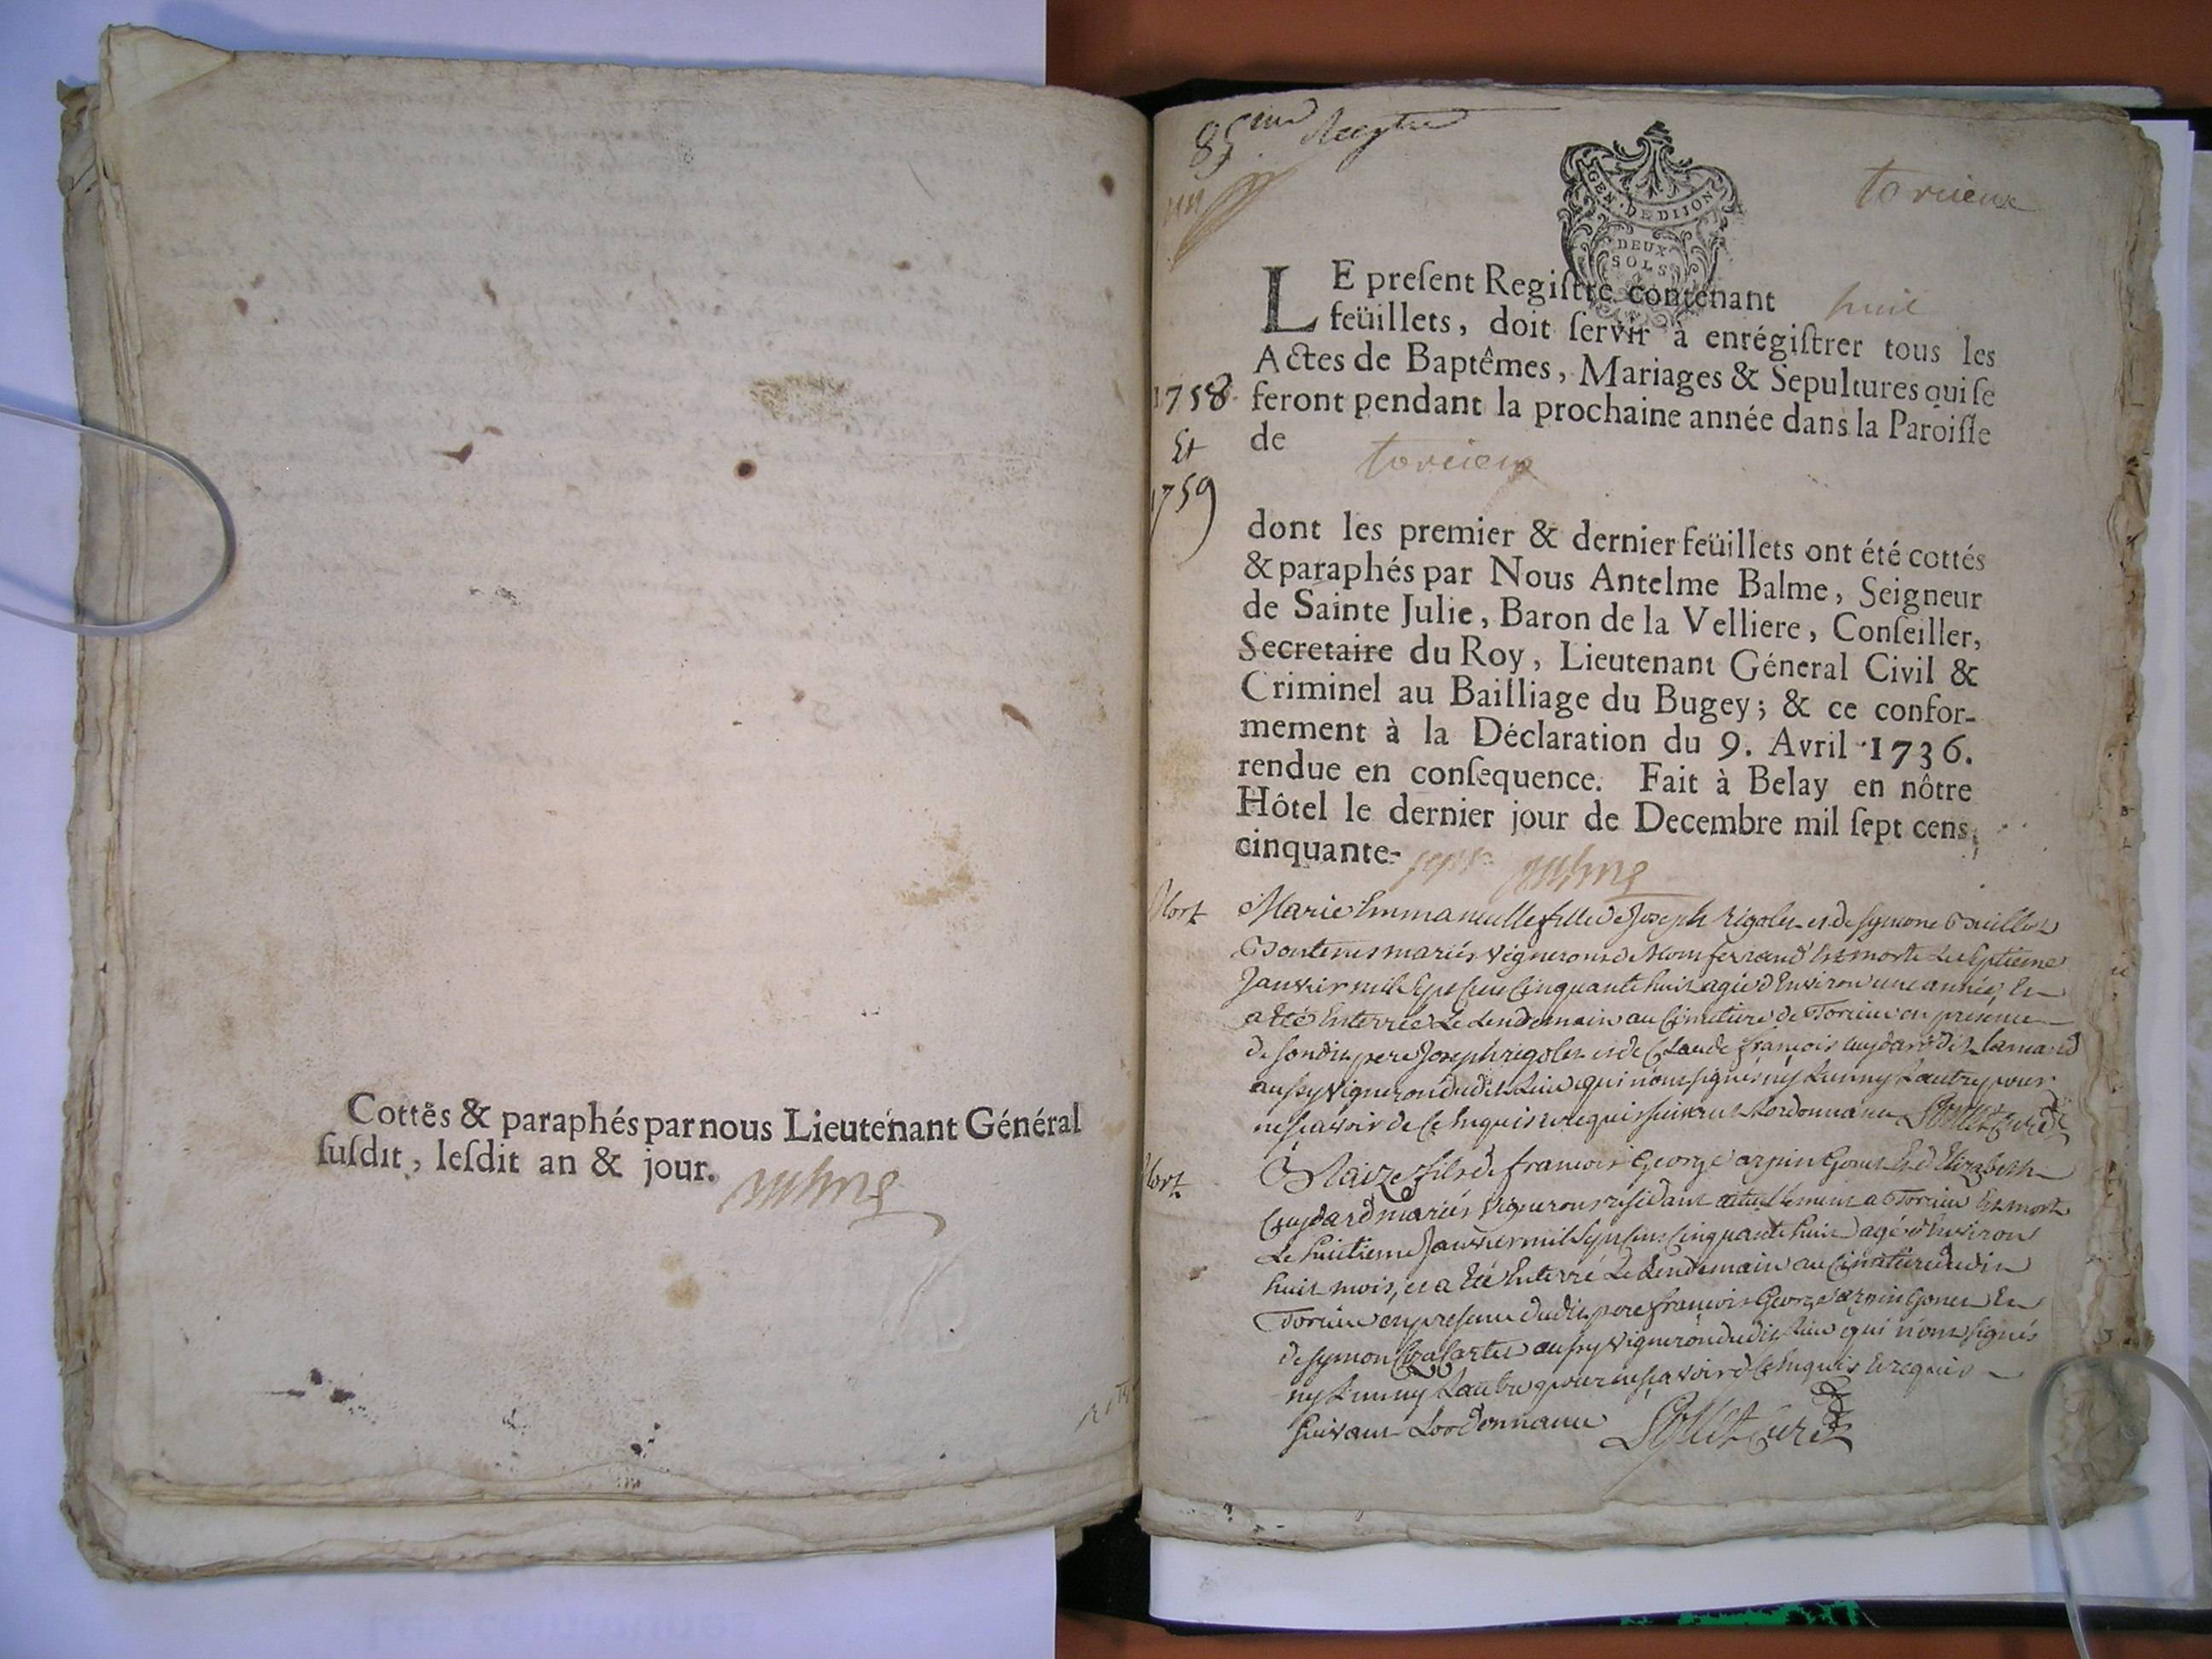 Cottés & paraphés par nous Lieutenant Général
ſuſdit, leſdit an & jour.
85 Regtre
torcieux
GEN. DE DIJON
DEUX
SOLS
LE preſent Regiſtre contenant huit
feüillets, doit ſervir à enrégiſtrer tous les
Actes de Baptêmes, Mariages & Sepultures qui ſe
1758 feront pendant la prochaine année dans la Paroiſſe
Et de
torcieu
1759
dont les premier & dernier feüillets ont été cottés
& paraphés par Nous Antelme Balme, Seigneur
de Sainte Julie, Baron de la Velliere, Conſeiller,
Secretaire du Roy, Lieutenant Géneral Civil &
Criminel au Bailliage du Bugey; & ce confor-
mement à la Déclaration du 9. Avril 1736.
rendue en conſequence. Fait à Belay en nôtre
Hôtel le dernier jour de Decembre mil ſept cens,
cinquante- sept
Mort Marie Emmanuelle fille de Joseph rigolet et de symone
mariés vignerons de Montferrand Est morte Le septieme
Janvier mil sept cen cinquante huit agée d'Environ une année, Et
a Eté Enterrée Le Lendemain au cimetiere de Torcieu en presence
de son dit pere Joseph rigolet et de Claude françois
aussy vigneron dudit Lieu qui n'ont signés ny L'un ny L'autre pour
ne scavoir de ce Enquis et requis suivant L'ordonnance Curé
Mort Blaize fils de françois George arpin Gonet Et d'Elizabeth
mariés vignerons residant actuellement a Torcieu Est mort
Le huitieme Janvier mil sept cens cinquante huit agé d'Environ
huit mois, et a Eté Enterré Le Lendemain au cimetiere dudit
Torcieu en presence dudit pere françois George arpin Gonet Et
de symon aussy vigneron dudit Lieu qui n'ont signés
ny L'un ny L'autre pour ne scavoir de ce Enquis et requis
suivant L'ordonnance Curé